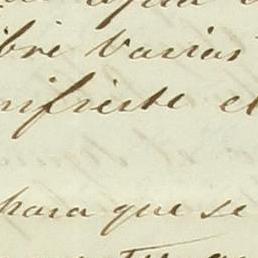 agua
bre varias
nifieste el
para que se